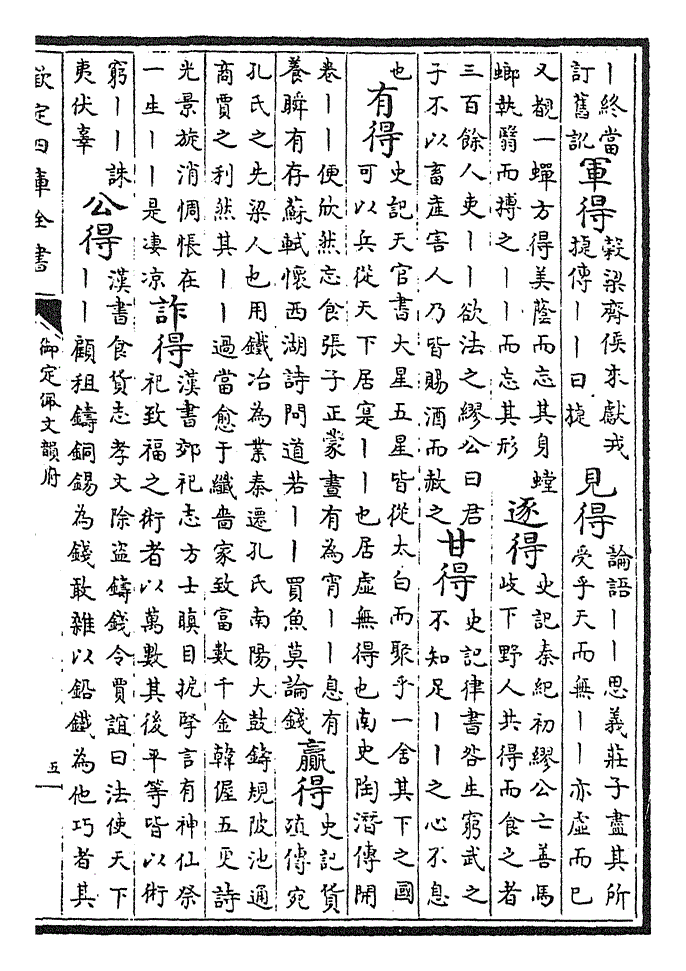 丨終當
訂舊訛
軍得
榖梁齊侯來獻戎
捷傳丨丨曰捷
見得
論語丨丨思義莊子盡其所
受乎天而無丨丨亦虛而已
又覩一蟬方得美蔭而忘其身螳
螂執翳而搏之丨丨而忘其形
逐得
史記秦紀初繆公亡善馬
岐下野人共得而食之者
三百餘人吏丨丨欲法之繆公曰君
子不以畜產害人乃皆賜酒而赦之
甘得
史記律書咎生窮武之
不知足丨丨之心不息
也
有得
史記天官書大星五星皆從太白而聚乎一舍其下之國
可以兵從天下居寔丨丨也居虛無得也南史陶潛傳開
卷丨丨便欣然忘食張子正蒙晝有為宵丨丨息有
養瞬有存蘇軾懷西湖詩問道若丨丨買魚莫論錢
贏得
史記貨
殖傳宛
孔氏之先梁人也用鐵冶為業秦遷孔氏南陽大鼓鑄規陂池通
商賈之利然其丨丨過當愈于纖嗇家致富數千金韓偓五更詩
光景旋消惆悵在
一生丨丨是凄凉
詐得
漢書郊祀志方士瞋目扼掔言有神仙祭
祀致福之術者以萬數其後平等皆以術
窮丨丨誅
夷伏辜
公得
漢書食貨志孝文除盜鑄錢令賈誼曰法使天下
丨丨顧租鑄銅錫為錢敢雜以鉛鐵為他巧者其
欽定四庫全書
御定佩文韻府
五